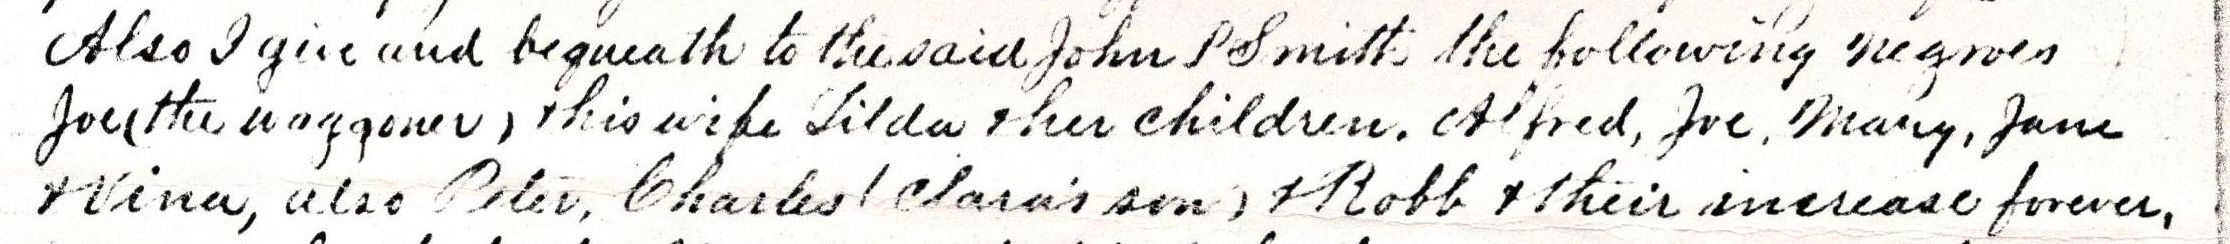 Also I give and bequeath to the said John P Smith the following negroes
Joe (the waggoner) & his wife Tilda & her children. Alfred, Joe, Mary, Jane
& Vina, also Peter, Charles (Clara's son) & Robb & their increase forever,